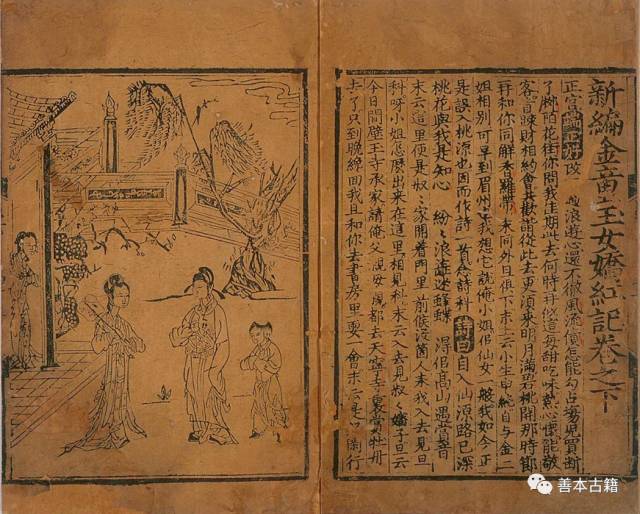 新編金童玉女嬌紅記卷之下
正宮端正好 浪遊心還不徹風流債怎能勾占場兒買斷
了陌花往你問我佳期此去何時
客相約會從此去更須來明月滿碧桃開那時節
和你同解香羅帶末同外旦俱下末上云小生申純自與金二
姐相別可早到眉州我想它說俺小姐侶仙女一般我如今正
是誤入桃源也因而作詩一首念詩科詩曰自入仙源路已深
桃花與我是知心 紛紛浪遊迷蜂蝶 得侶高山遇賞音
末云這里便是叔叔家開着門里前候沒箇人末我入去見旦
科呀小姐怎麼出來在這里相見科末云入去見叔叔嬸子旦云
今日間壁王寺丞家請俺父親母親都去大寧寺里賞牡丹
去了只到晚綿回我且和你去書房里耍一會末云是同行
善本古籍